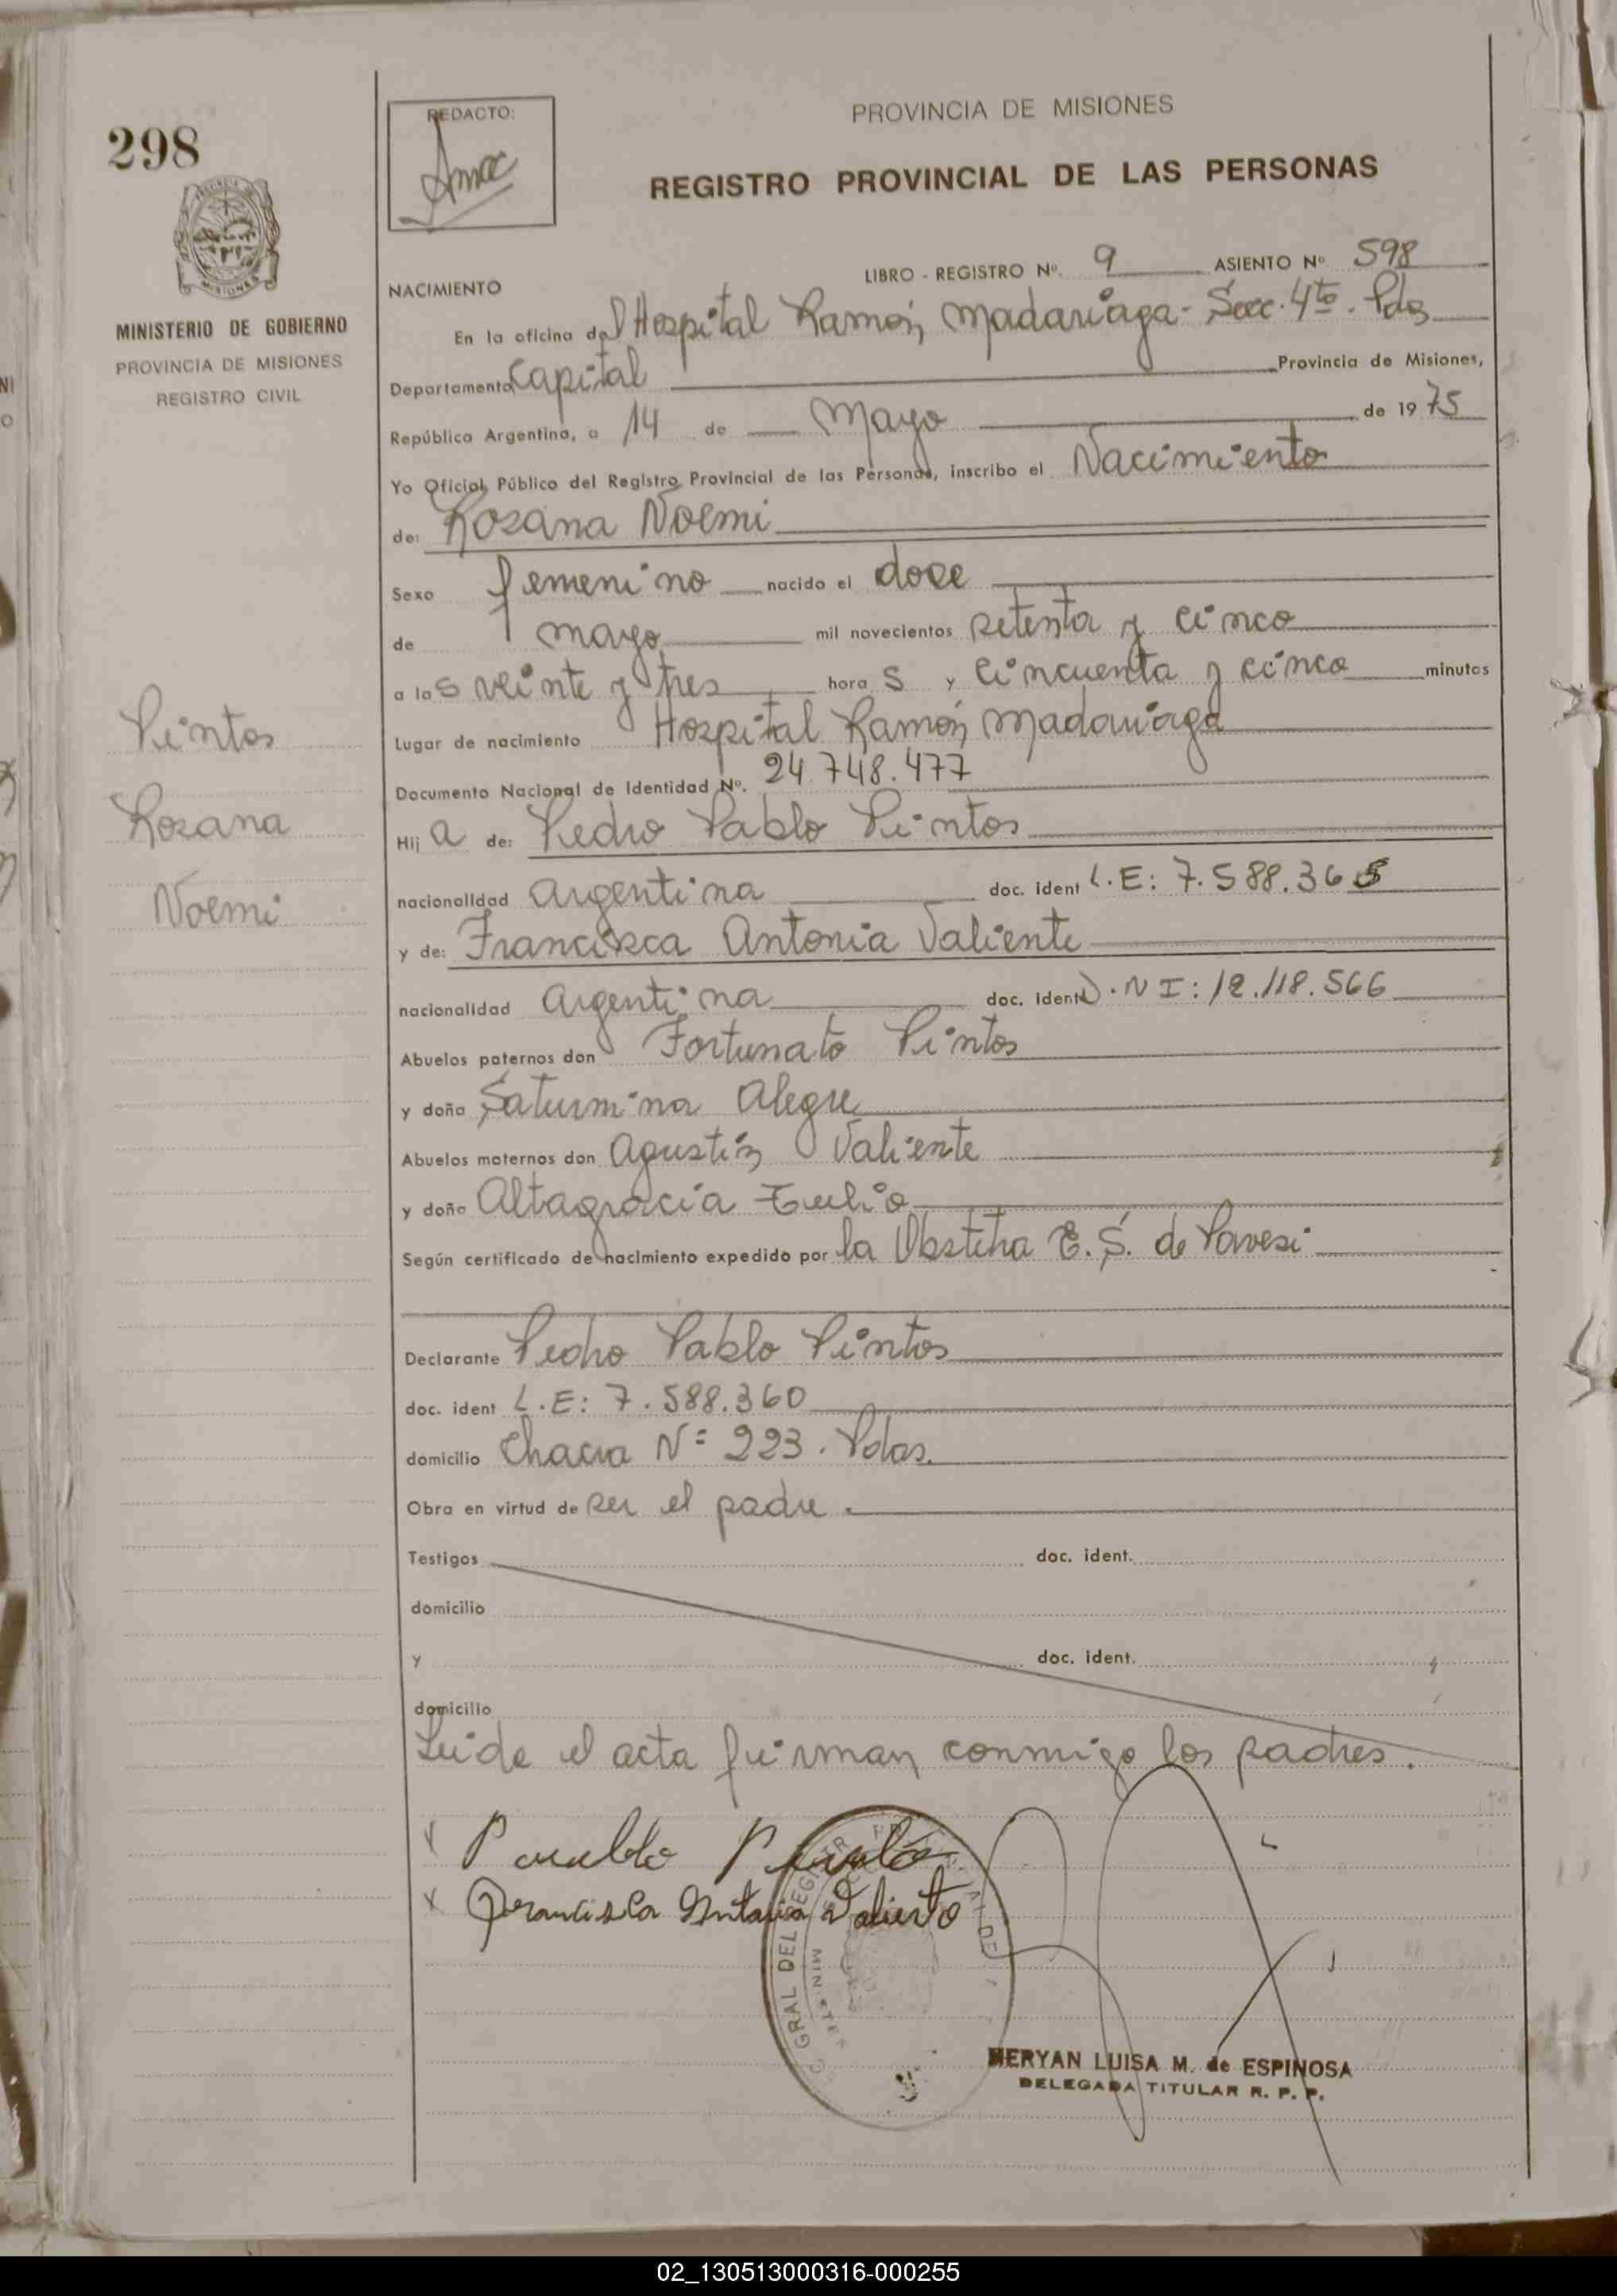 298
REDACTO:
PROVINCIA DE MISIONES
REGISTRO PROVINCIAL DE LAS PERSONAS
MINISTERIO DE GOBIERNO
PROVINCIA DE MISIONES
REGISTRO CIVIL
LIBRO - REGISTRO Nº. 9 ASIENTO Nº 598
NACIMIENTO
En la oficina del Hospital Ramón Madariaga - Secc. 4ta. Pdas
Departamento Capital Provincia de Misiones,
República Argentina, a 14 de Mayo de 1975
Yo Oficial Público del Registro Provincial de las Personas, inscribo el Nacimiento
de: Rosana Noemi
Sexo femenino nacido el doce
de mayo mil novecientos setenta y cinco
a las veinte y tres horas y cincuenta y cinco minutos
Lugar de nacimiento Hospital Ramón Madariaga
Documento Nacional de Identidad Nº. 24.748.477
Pintos
Rosana
Noemi
Hija de: Pedro Pablo Pintos
nacionalidad argentina doc. ident L.E: 7.588.36
y de: Francisca Antonia Valiente
nacionalidad argentina doc. ident D.NI: 12.118.566
Abuelos paternos don Fortunato Pintos
y doña Saturnina Alegre
Abuelos maternos don Agustín Valiente
y doña Altagracia
Según certificado de nacimiento expedido por la Obstetra E. S. de Pavesi
Declarante Pedro Pablo Pintos
doc. ident L.E: 7.588.360
domicilio Chacra Nº 223. Pdas.
Obra en virtud de ser el padre.
Testigos doc. ident.
domicilio
y doc. ident.
domicilio
Leida el acta firman conmigo los padres.
Francisca Antonia Valiente
GRAL DEL REGISTR
MERYAN LUISA M. de ESPINOSA
DELEGADA TITULAR R. P. P.
02_130513000316-000255